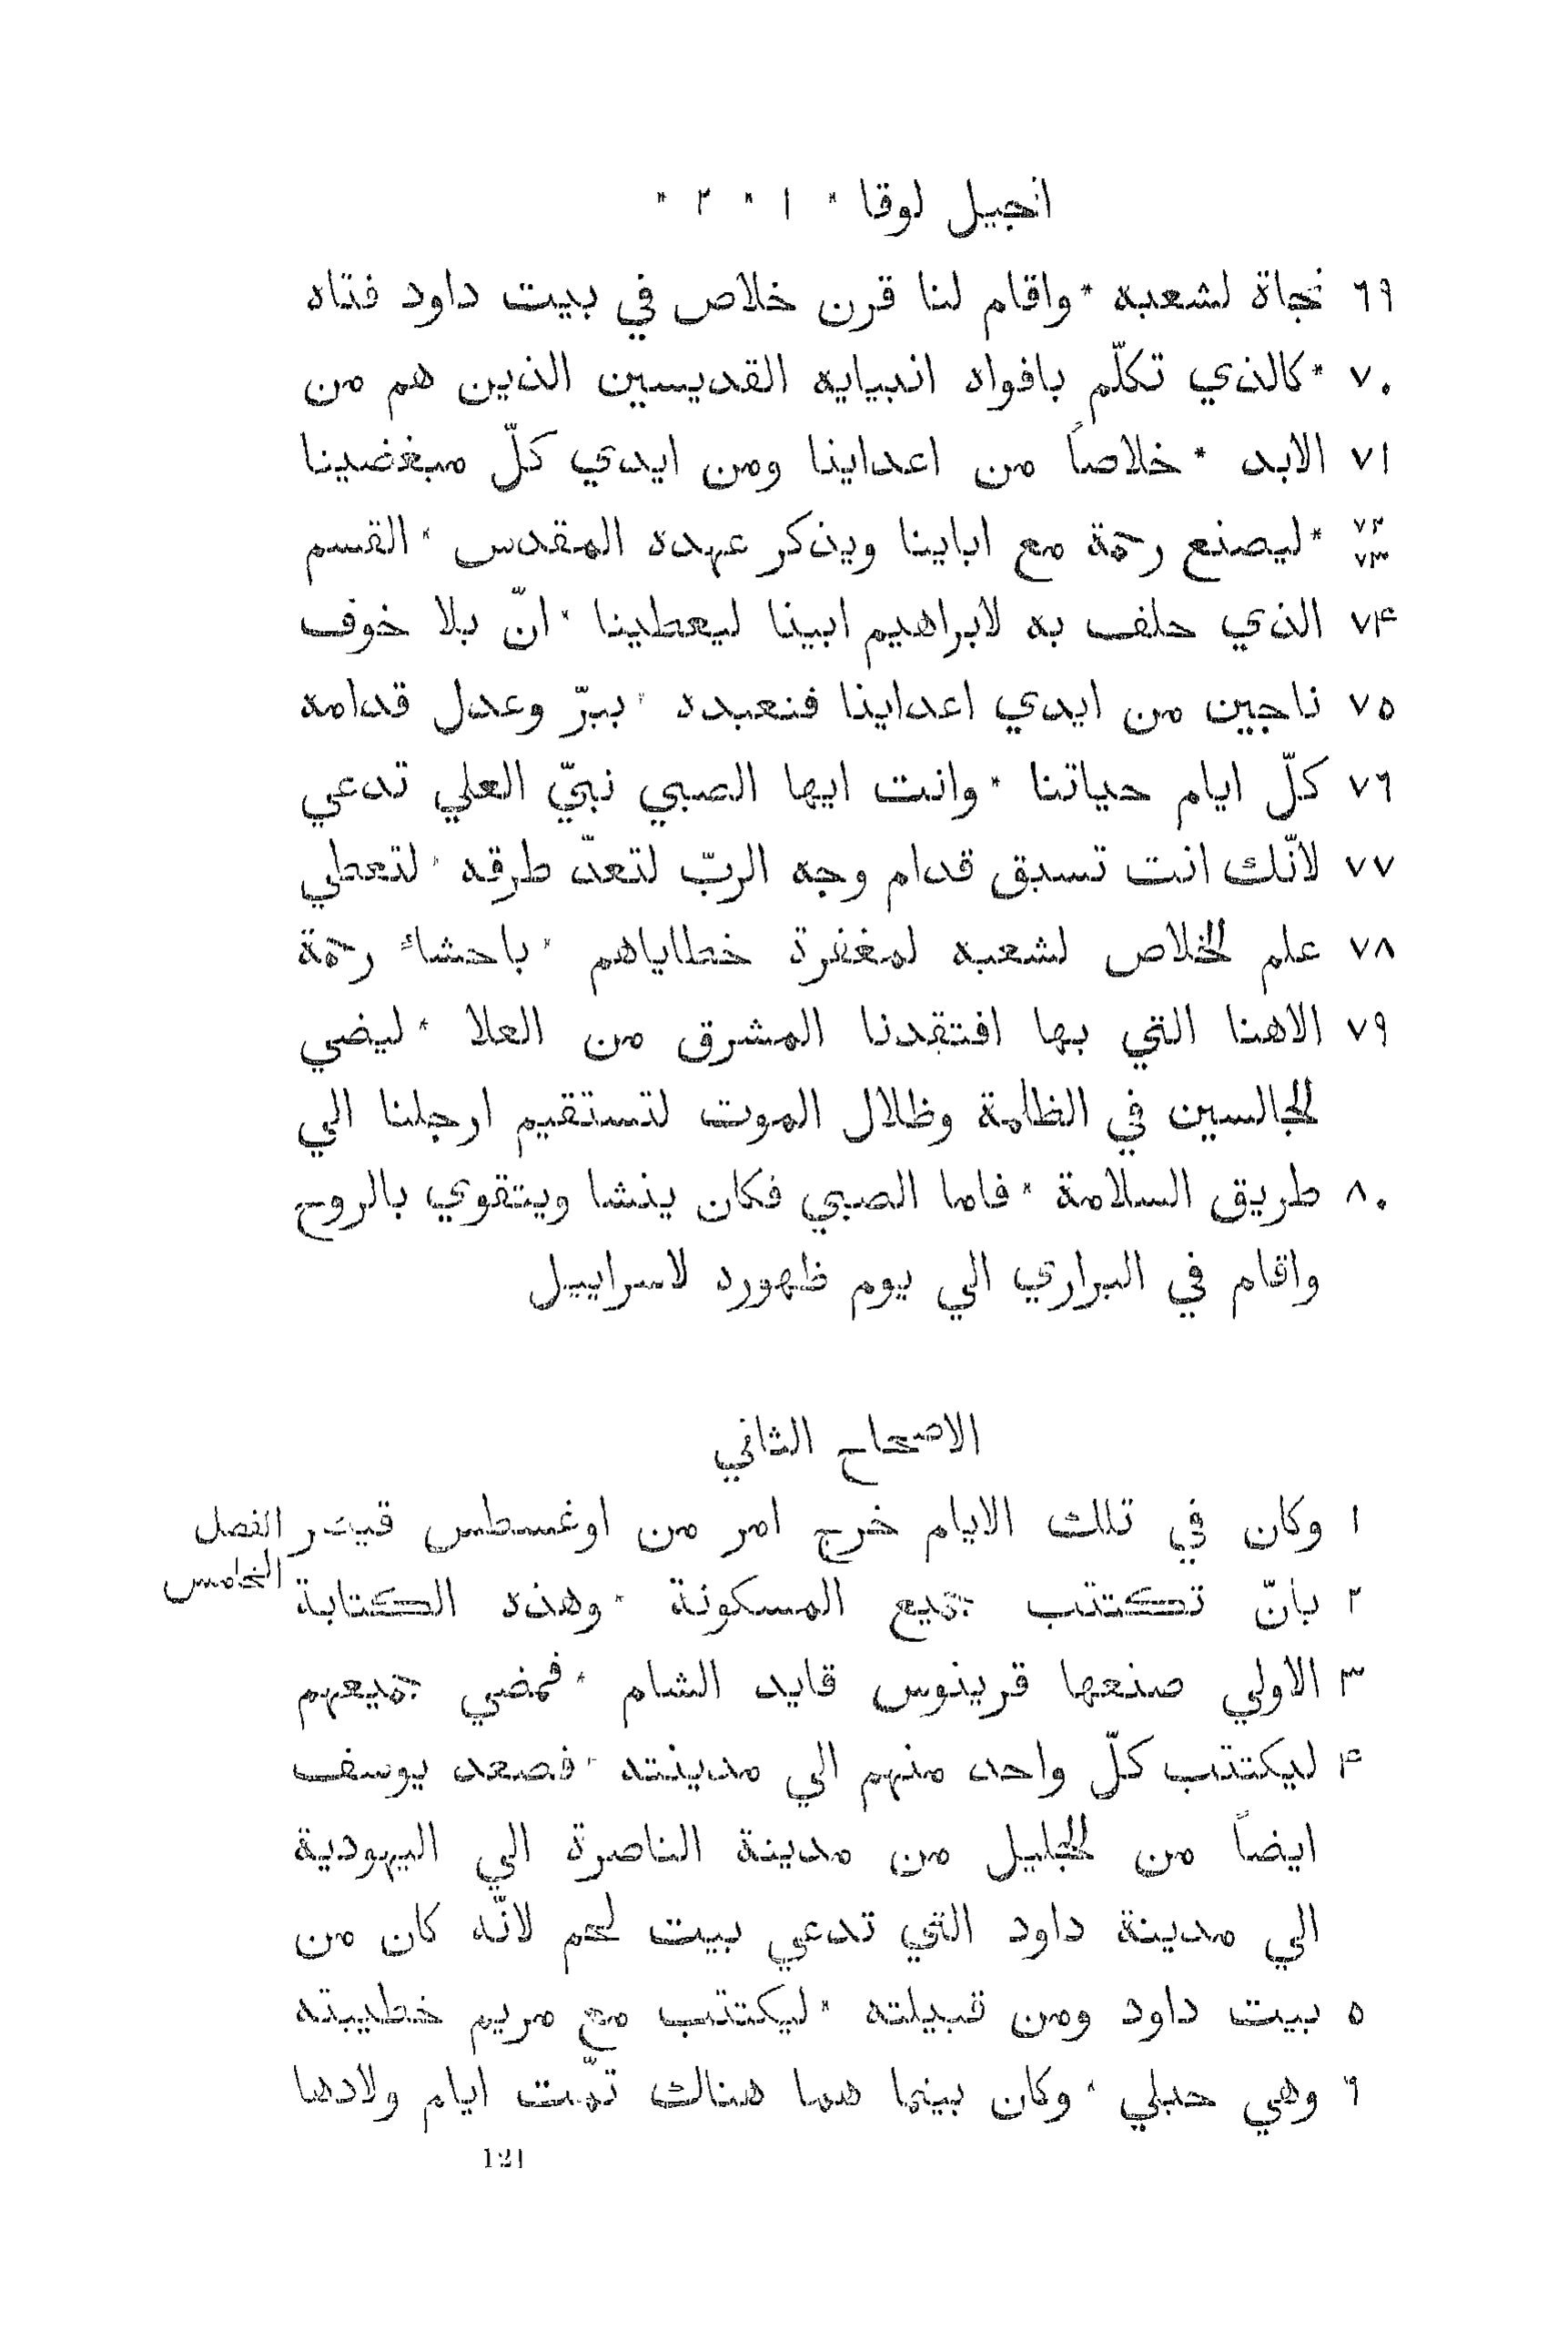 انجيل لوقا * ١ * ٢ *
٦٩ نجاة لشعبه * واقام لنا قرن خلاص في بيت داود فتاه
٧٠ * كالذي تكلّم بافواه انبيايه القديسين الذين هم من
٧١ الابد * خلاصاً من اعداينا ومن ايدي كلّ مبغضينا
٧٢ ٧٣ * ليصنع رحمة مع اباينا ويذكر عهده المقدس * القسم
٧۴ الذي حلف به لابراهيم ابينا ليعطينا * انّ بلا خوف
٧٥ ناجين من ايدي اعداينا فنعبده * ببرّ وعدل قدامه
٧٦ كلّ ايام حياتنا * وانت ايها الصبي نبيّ العلي تدعي
٧٧ لانّك انت تسبق قدام وجه الربّ لتعدّ طرقه * لتعطي
٧٨ علم الخلاص لشعبه لمغفرة خطاياهم * باحشاء رحمة
٧٩ الاهنا التي بها افتقدنا المشرق من العلا * ليضي
للجالسين في الظلمة وظلال الموت لتستقيم ارجلنا الي
٨٠ طريق السلامة * فاما الصبي فكان ينشا ويتقوي بالروح
واقام في البراري الي يوم ظهوره لاسراييل
الاصحاح الثاني
١ وكان في تلك الايام خرج امر من اوغسطس قيصر الفصل
الخامس
٢ بانّ تكتتب جميع المسكونة * وهذه الكتابة
٣ الاولي صنعها قرينوس قايد الشام * فمضي جميعهم
۴ ليكتتب كلّ واحد منهم الي مدينته * فصعد يوسف
ايضاً من الجليل من مدينة الناصرة الي اليهودية
الي مدينة داود التي تدعي بيت لحم لانّه كان من
٥ بيت داود ومن قبيلته * ليكتتب مع مريم خطيبته
٦ وهي حبلي * وكان بينما هما هناك تمّت ايام ولادها
121